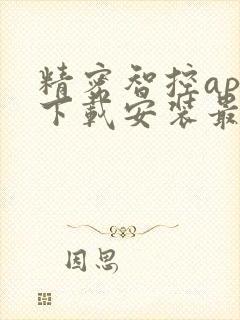 精密智控ap
下载安装最
因思